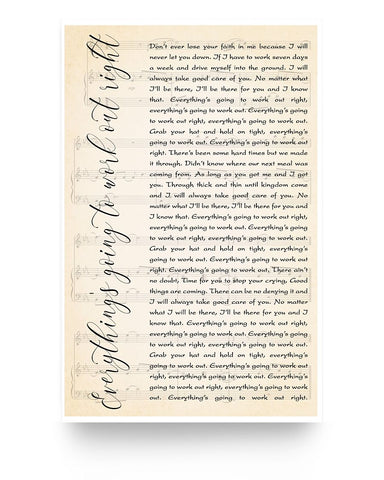 Everything's going to work out right
Don't ever lose your faith in me because I will
never let you down. If I have to work seven days
a week and drive myself into the ground. I will
always take good care of you. No matter what
I'll be there, I'll be there for you and I know
that. Everything's going to work out right,
everything's going to work out, everything's going
to work out right, everything's going to work out.
Grab your hat and hold on tight, everything's
going to work out. Everything's going to work out
right. There's been some hard times but we made
it through. Didn't know where our next meal was
coming from. As long as you got me and I got
you. Through thick and thin until kingdom come
and I will always take good care of you. No
matter what I'll be there, I'll be there for you and
I know that. Everything's going to work out right,
everything's going to work out, everything's going
to work out right, everything's going to work out.
Grab your hat and hold on tight, everything's
going to work out. Everything's going to work out
right. Everything's going to work out, There ain't
no doubt, Time for you to stop your crying, Good
things are coming. There can be no denying it and
I will always take good care of you. No matter
what I'll be there, I'll be there for you and I
know that. Everything's going to work out right,
everything's going to work out, everything's going
to work out right, everything's going to work out.
Grab your hat and hold on tight, everything's
going to work out. Everything's going to work out
right, everything's going to work out, everything's
going to work out right, everything's going to work
out. Everything's going to work out right.